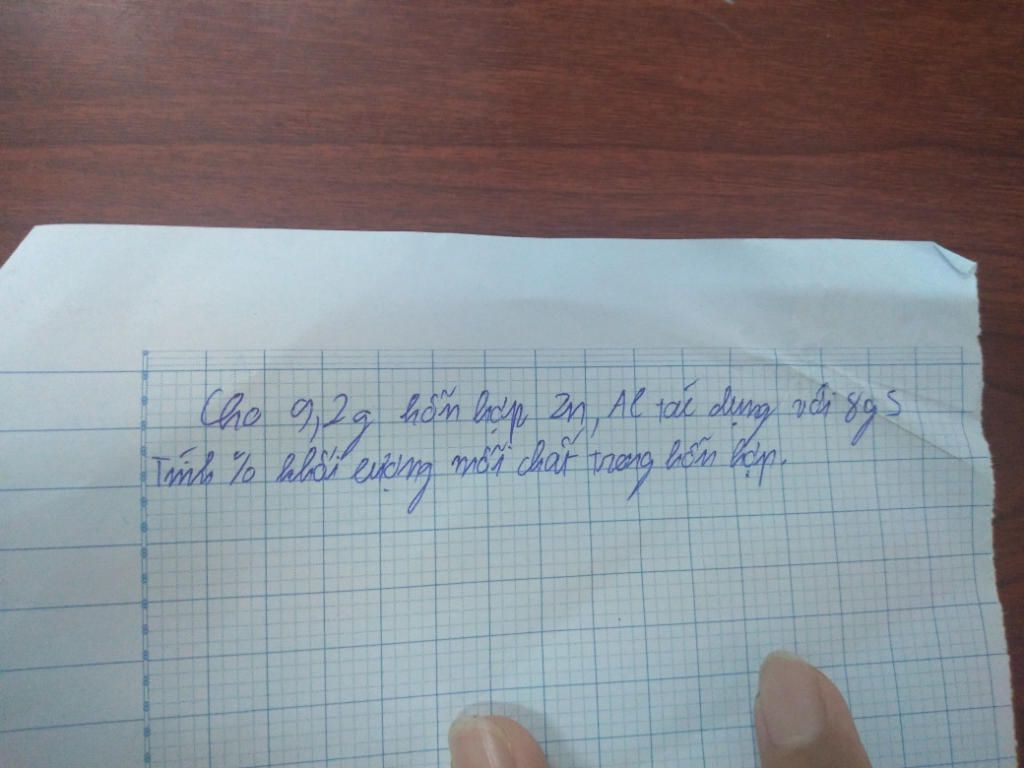 Cho 9,2g hỗn hợp Zn, Al tác dụng với 8g S
Tính % khối lượng mỗi chất trong hỗn hợp.